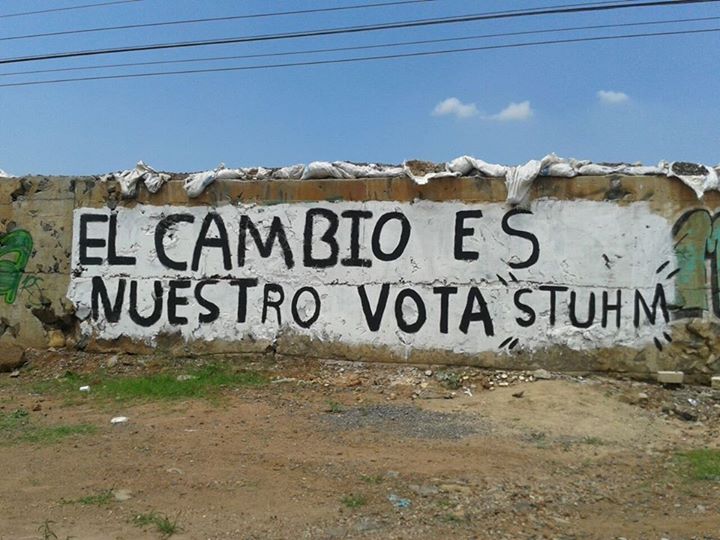 EL CAMBIO ES
NUESTRO VOTA "STUHM"